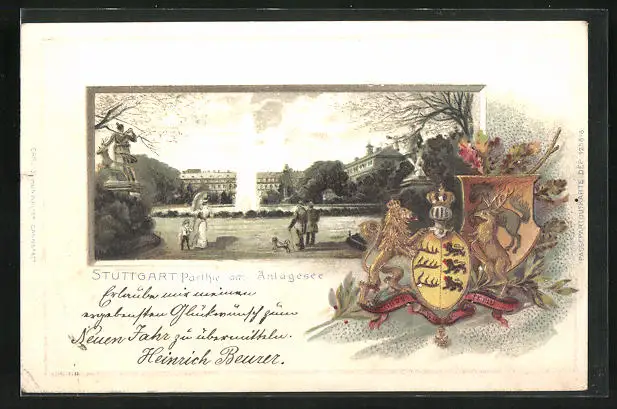 STUTTGART Parthie am Anlagesee
Erlaube mir meinen
ergebensten Glückwunsch zum
Neuen Jahr zu übermitteln.
Heinrich Beurer.
PASSEPARTOUTKARTE DEP. 12586